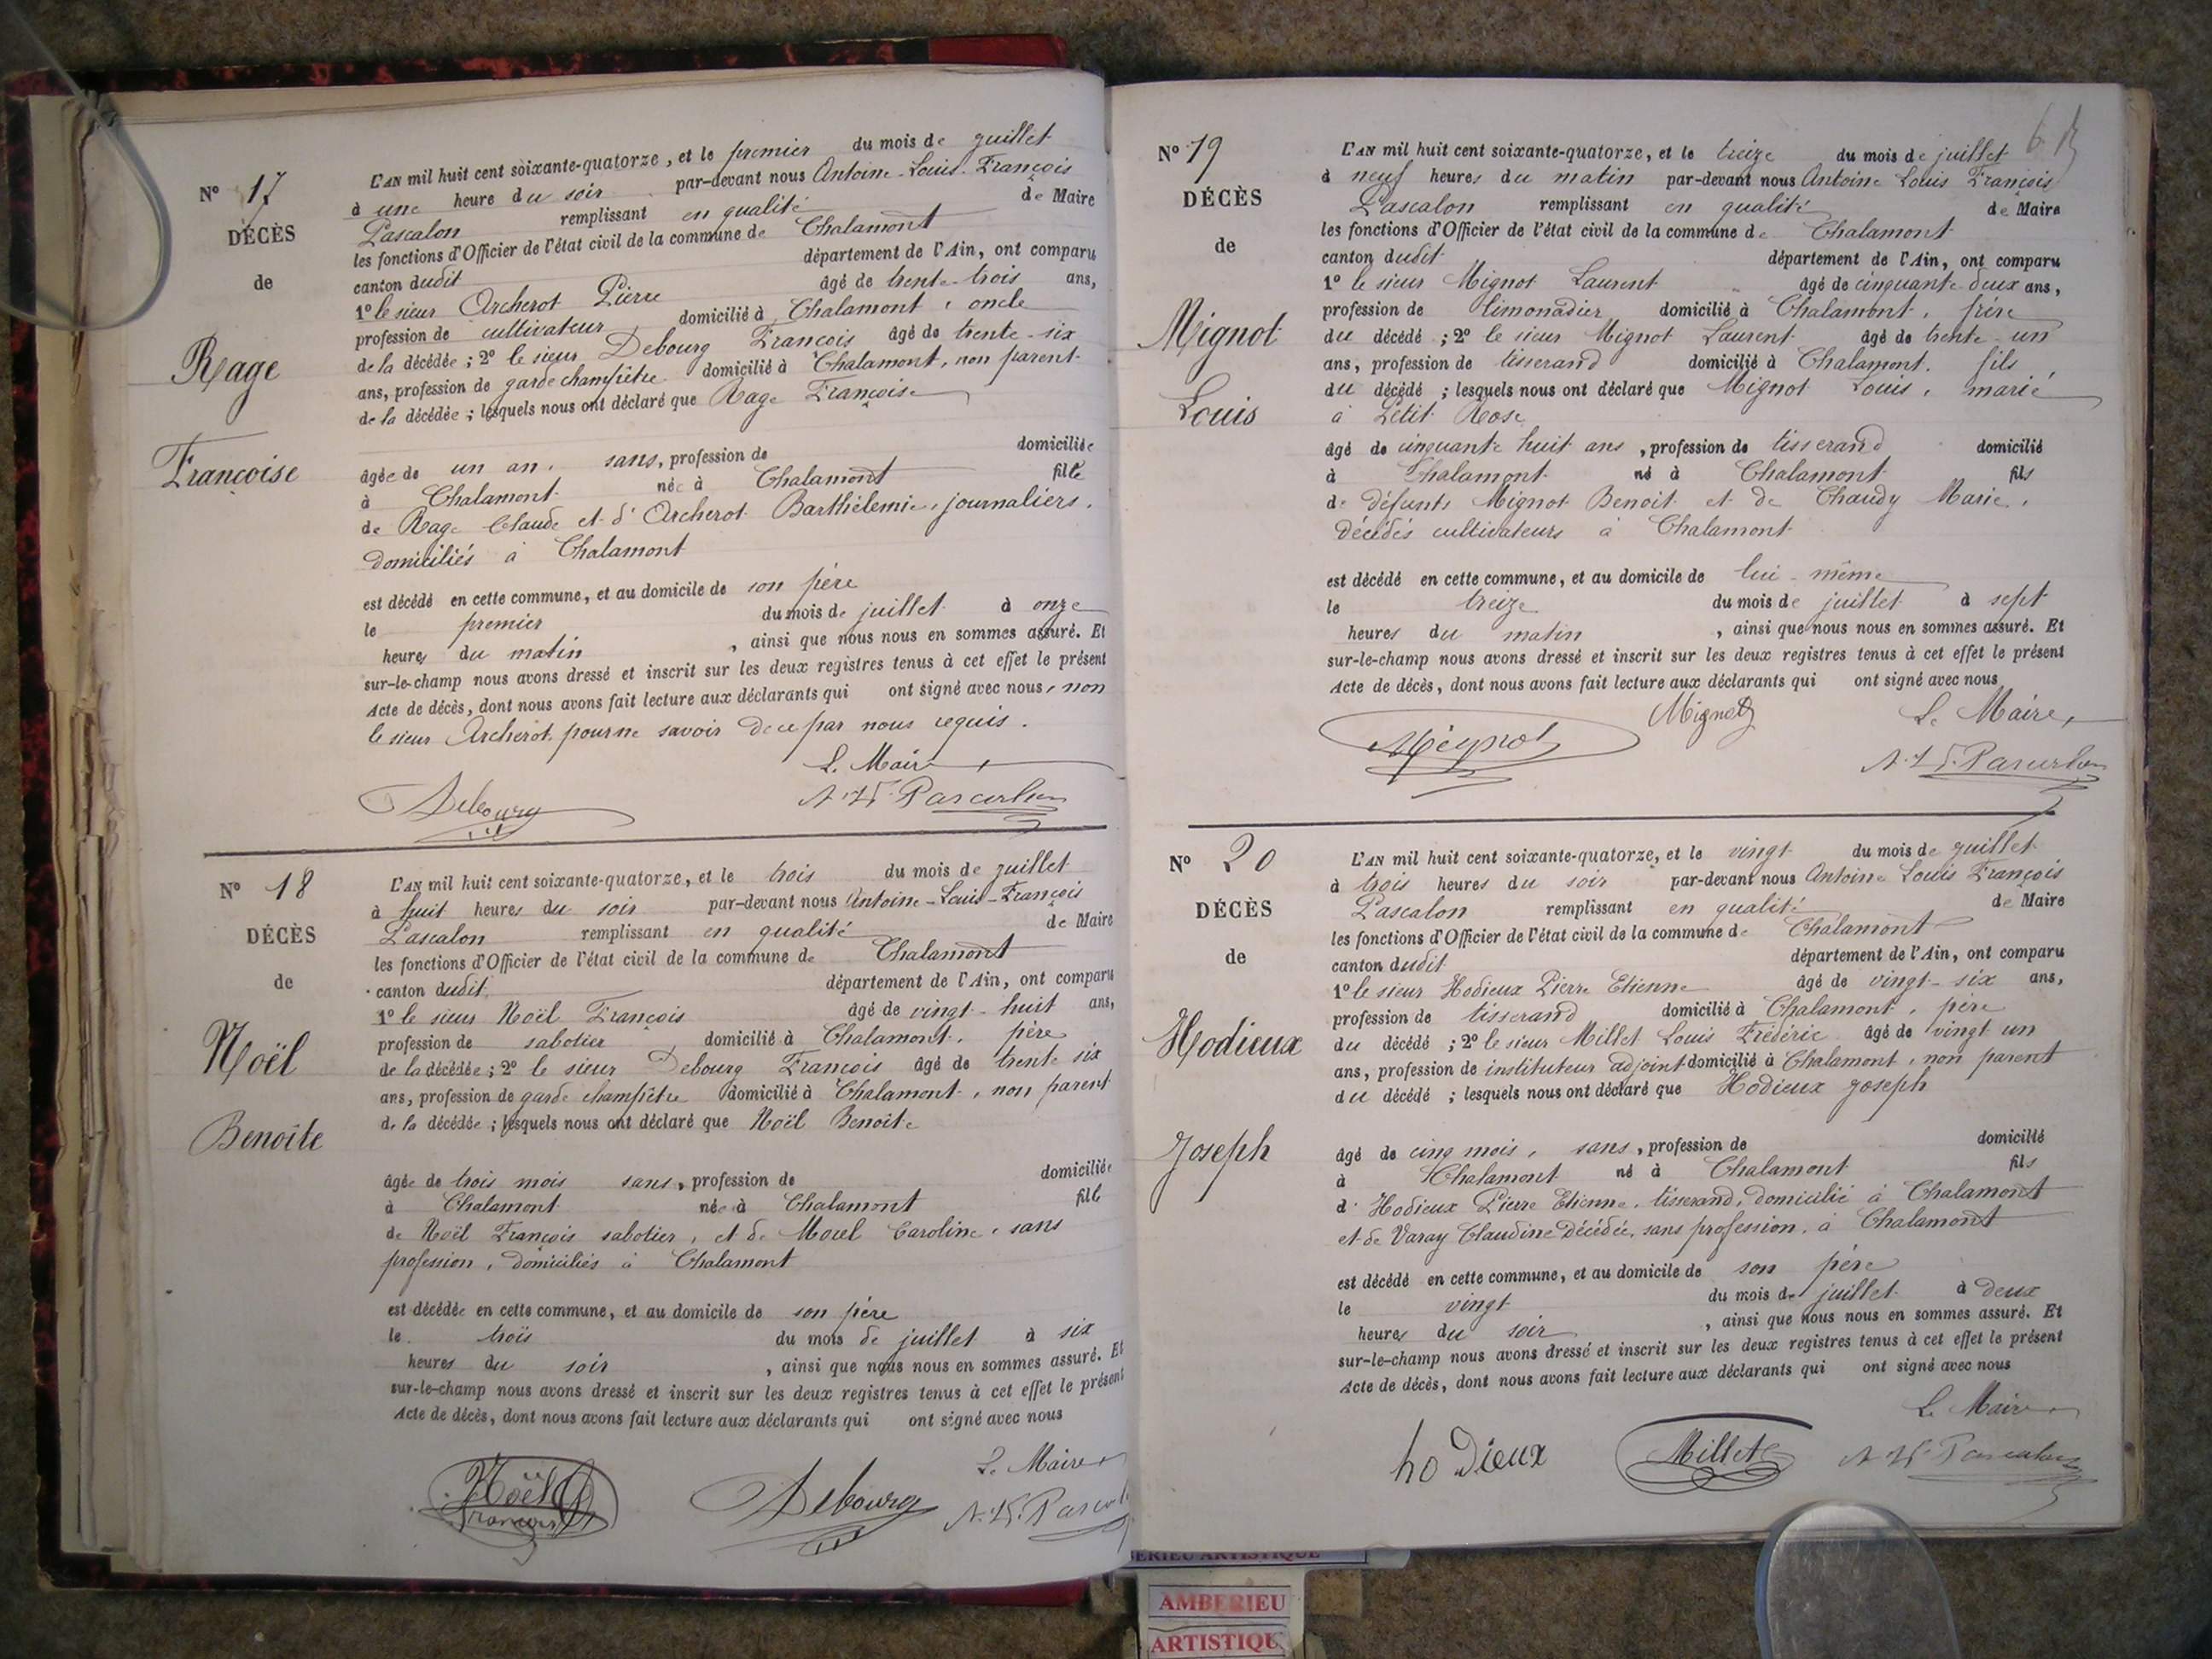 N° 17
DÉCÈS
de
Rage
Françoise
L'AN mil huit cent soixante-quatorze, et le premier du mois de juillet
à une heure du soir par-devant nous Antoine-Louis-François
Pascalon remplissant en qualité de Maire
les fonctions d'Officier de l'état civil de la commune de Chalamont
canton dudit département de l'Ain, ont comparu
1° le sieur Archerot Pierre âgé de trente-trois ans,
profession de cultivateur, domicilié à Chalamont, oncle
de la décédée ; 2° le sieur Debourg François âgé de trente-six
ans, profession de garde champêtre domicilié à Chalamont, non parent
de la décédée ; lesquels nous ont déclaré que Rage Françoise
âgée de un an, sans, profession de domiciliée
à Chalamont née à Chalamont fille
de Rage Claude et d'Archerot Barthélemie, journaliers,
domiciliés à Chalamont
est décédé en cette commune, et au domicile de son père
le premier du mois de juillet à onze
heures du matin, ainsi que nous nous en sommes assuré. Et
sur-le-champ nous avons dressé et inscrit sur les deux registres tenus à cet effet le présent
Acte de décès, dont nous avons fait lecture aux déclarants qui ont signé avec nous, non
le sieur Archerot pour ne savoir de ce par nous requis.
Le Maire
Debourg A. L. F. Pascalon
N° 18
DÉCÈS
de
Noël
Benoite
L'AN mil huit cent soixante-quatorze, et le trois du mois de juillet
à huit heures du soir par-devant nous Antoine-Louis-François
Pascalon remplissant en qualité de Maire
les fonctions d'Officier de l'état civil de la commune de Chalamont
canton dudit département de l'Ain, ont comparu
1° le sieur Noël François âgé de vingt-huit ans,
profession de sabotier, domicilié à Chalamont, père
de la décédée ; 2° le sieur Debourg François âgé de trente six
ans, profession de garde champêtre domicilié à Chalamont, non parent
de la décédée ; lesquels nous ont déclaré que Noël Benoite
âgée de trois mois sans, profession de domiciliée
à Chalamont née à Chalamont fille
de Noël François sabotier, et de Morel Caroline, sans
profession, domiciliés à Chalamont
est décédée en cette commune, et au domicile de son père
le trois du mois de juillet à six
heures du soir, ainsi que nous nous en sommes assuré. Et
sur-le-champ nous avons dressé et inscrit sur les deux registres tenus à cet effet le présent
Acte de décès, dont nous avons fait lecture aux déclarants qui ont signé avec nous
Le Maire
Noël François Debourg A. L. F. Pascalon
N° 19
DÉCÈS
de
Mignot
Louis
L'AN mil huit cent soixante-quatorze, et le treize du mois de juillet
à neuf heures du matin par-devant nous Antoine Louis François
Pascalon remplissant en qualité de Maire
les fonctions d'Officier de l'état civil de la commune de Chalamont
canton dudit département de l'Ain, ont comparu
1° le sieur Mignot Laurent âgé de cinquante-deux ans,
profession de limonadier domicilié à Chalamont, frère
du décédé ; 2° le sieur Mignot Laurent âgé de trente-un
ans, profession de tisserand domicilié à Chalamont, fils
du décédé ; lesquels nous ont déclaré que Mignot Louis, marié
à Petit Rose
âgé de cinquante huit ans, profession de tisserand domicilié
à Chalamont né à Chalamont fils
de défunts Mignot Benoit et de Chaudy Marie,
décédés cultivateurs à Chalamont
est décédé en cette commune, et au domicile de lui-même
le treize du mois de juillet à sept
heures du matin, ainsi que nous nous en sommes assuré. Et
sur-le-champ nous avons dressé et inscrit sur les deux registres tenus à cet effet le présent
Acte de décès, dont nous avons fait lecture aux déclarants qui ont signé avec nous
Mignot Mignot Le Maire,
A. L. F. Pascalon
N° 20
DÉCÈS
de
Hodieux
Joseph
L'AN mil huit cent soixante-quatorze, et le vingt du mois de juillet
à trois heures du soir par-devant nous Antoine Louis François
Pascalon remplissant en qualité de Maire
les fonctions d'Officier de l'état civil de la commune de Chalamont
canton dudit département de l'Ain, ont comparu
1° le sieur Hodieux Pierre Etienne âgé de vingt-six ans,
profession de tisserand domicilié à Chalamont, père
du décédé ; 2° le sieur Millet Louis Frédéric âgé de vingt un
ans, profession de instituteur adjoint domicilié à Chalamont, non parent
du décédé ; lesquels nous ont déclaré que Hodieux Joseph
âgé de cinq mois, sans, profession de domicilié
à Chalamont né à Chalamont fils
d'Hodieux Pierre Etienne, tisserand, domicilié à Chalamont
et de Varay Claudine décédée, sans profession, à Chalamont
est décédé en cette commune, et au domicile de son père
le vingt du mois de juillet à deux
heures du soir, ainsi que nous nous en sommes assuré. Et
sur-le-champ nous avons dressé et inscrit sur les deux registres tenus à cet effet le présent
Acte de décès, dont nous avons fait lecture aux déclarants qui ont signé avec nous
Le Maire
hodieux Millet A. L. F. Pascalon
AMBERIEU
ARTISTIQUE